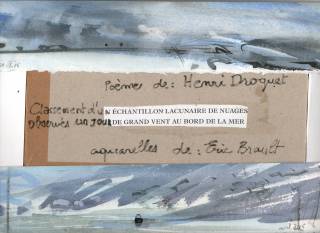 Poèmes de: Henri Droguet
Classement d'un ÉCHANTILLON LACUNAIRE DE NUAGES
observés un JOUR DE GRAND VENT AU BORD DE LA MER
aquarelles de: Eric Brault